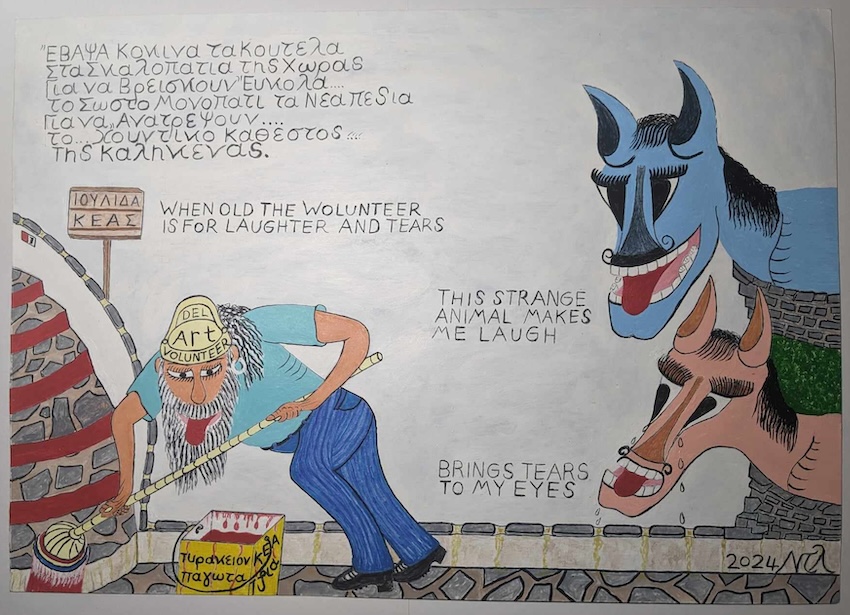 "ΕΒΑΨΑ Κοκινα τα Κουτελα
Στα Σκαλοπατια της Χωρας
Για να Βρεισκουν "Ευκολα....
το Σωστο Μονοπατι τα Νεα πεδια
Για να, Ανατρεψουν....
το... χουντικο καθεστος...
της καληκενας.
ΙΟΥΛΙΔΑ
ΚΕΑΣ
WHEN OLD THE WOLUNTEER
IS FOR LAUGHTER AND TEARS
THIS STRANGE
ANIMAL MAKES
ME LAUGH
DEL
Art
VOLUNTEER
BRINGS TEARS
TO MY EYES
τυρακειον
παγωτα
ΚΕΑ
2024